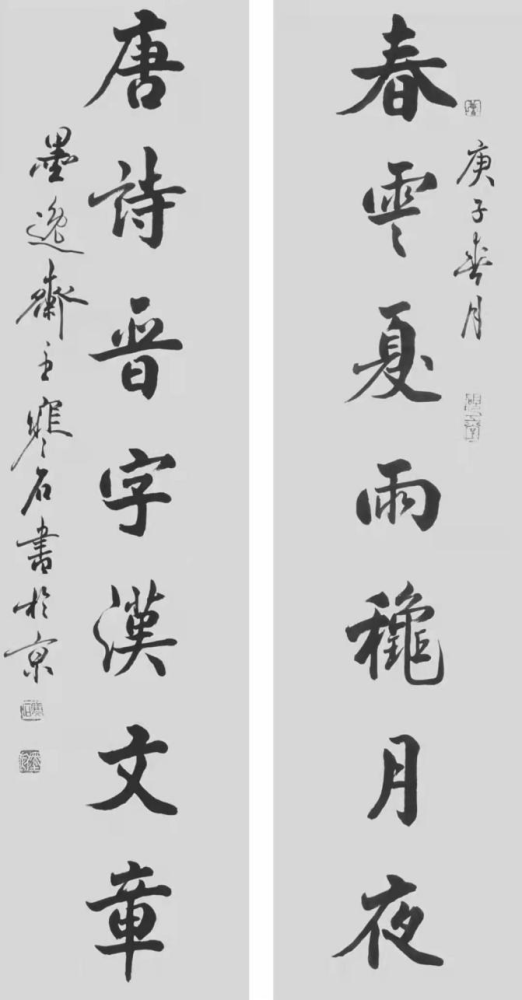 春雲夏雨龝月夜
庚子春月
唐詩晋字漢文章
墨逸齋主寒石書於京